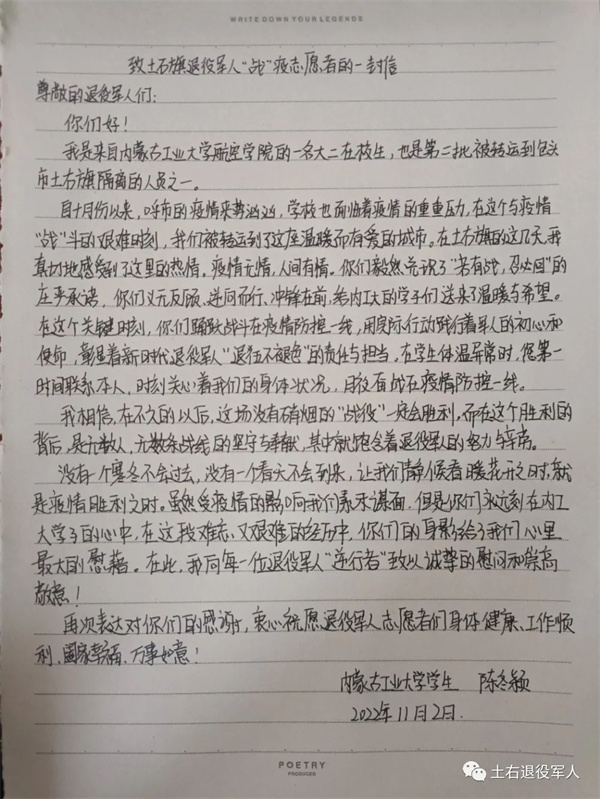 WRITE DOWN YOUR LEGENDS
致土右旗退役军人“战”疫志愿者的一封信
尊敬的退役军人们：
你们好！
我是来自内蒙古工业大学航空学院的一名大二在校生，也是第二批被转运到包头
市土右旗隔离的人员之一。
自十月份以来，呼市的疫情来势汹汹，学校也面临着疫情的重重压力，在这个与疫情
“战”斗的艰难时刻，我们被转运到了这座温暖而有爱的城市。在土右旗的这几天，我
真切地感受到了这里的热情。疫情无情，人间有情。你们毅然兑识了“若有战，召必回”的
庄严承诺，你们义无反顾、逆向而行、冲锋在前，给内工大的学子们送来了温暖与希望。
在这个关键时刻，你们踊跃战斗在疫情防控一线，用实际行动践行着军人的初心和
使命，彰显着新时代退役军人“退伍不褪色”的责任与担当。在学生体温异常时，您第一
时间联系本人，时刻关心着我们的身体状况，日夜奋战在疫情防控一线。
我相信，在不久的以后，这场没有硝烟的“战役”一定会胜利，而在这个胜利的
背后，是无数人，无数条战线的坚守与奉献，其中就包含着退役军人的努力与辛劳。
没有一个寒冬不会过去，没有一个春天不会到来，让我们静候春暖花开之时，就
是疫情胜利之时。虽然受疫情的影响我们素未谋面，但是你们永远刻在内工
大学子的心中，在这段难忘又艰难的经历中，你们的身影给了我们心里
最大的慰藉。在此，我向每一位退役军人“逆行者”致以诚挚的慰问和崇高
敬意！
再次表达对你们的感谢，衷心祝愿退役军人志愿者们身体健康、工作顺
利、阖家幸福、万事如意！
内蒙古工业大学学生 陈冬颖
2022年11月2日.
POETRY
PRODUCES
土右退役军人